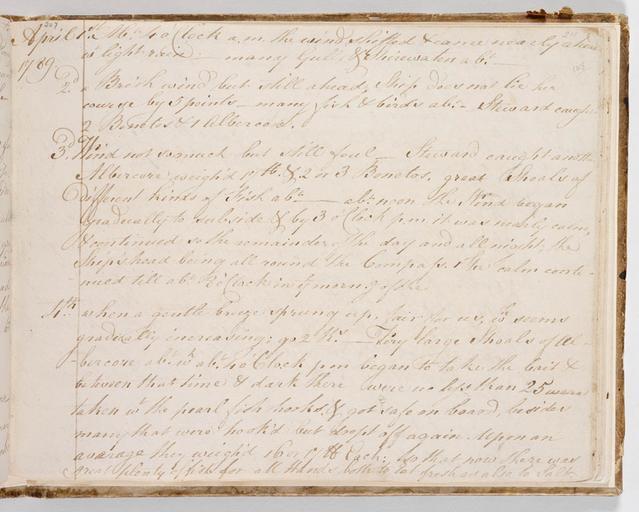 April 1st Abt. 4 o Clock a.m. the wind shifted & came nearly ahead
1799 wt light rain — many Gulls & abt.
2d a Brisk wind but still ahead, Ship does not lie her
course by 5 points — many fish & birds abt. — Steward caught
2 Bonetos & 1 Albercore.
3d Wind not so much but still foul — Steward caught another
Albercore weigh'd 17 lb. & 2 or 3 Bonetos, great Shoals of
different kinds of Fish abt. — abt. noon the Wind began
gradually to subside & by 3 o Clock p.m it was nearly calm,
& continued so the remainder of the day and all night, the
Ships head being all round the Compass. The calm conti-
nued till abt. o Clock in ye morng of the
4th when a gentle breeze sprung up, fair for us, & seems
gradually increasing; go 2 Ks. — Very large Shoals of Al-
bercore abt. us abt. 4 o Clock p.m began to take the bait &
between that time & dark there were no less than 25 were
taken wt the pearl fish hooks, & got safe on board, besides
many that were hook'd but dropt off again. Upon an
average they weigh'd 16 or 17 lb Each; so that now there was
great plenty of fish for all Hands, both to eat fresh as also to Salt.